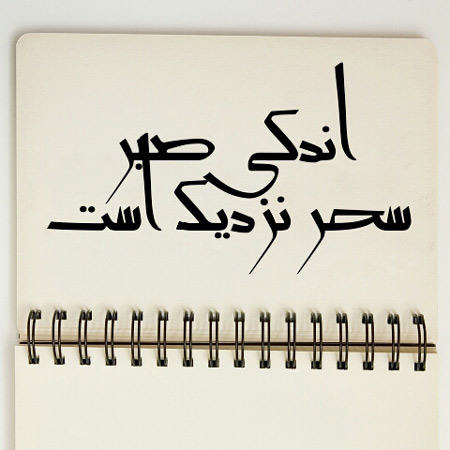 اندکی صبر
سحر نزدیک است